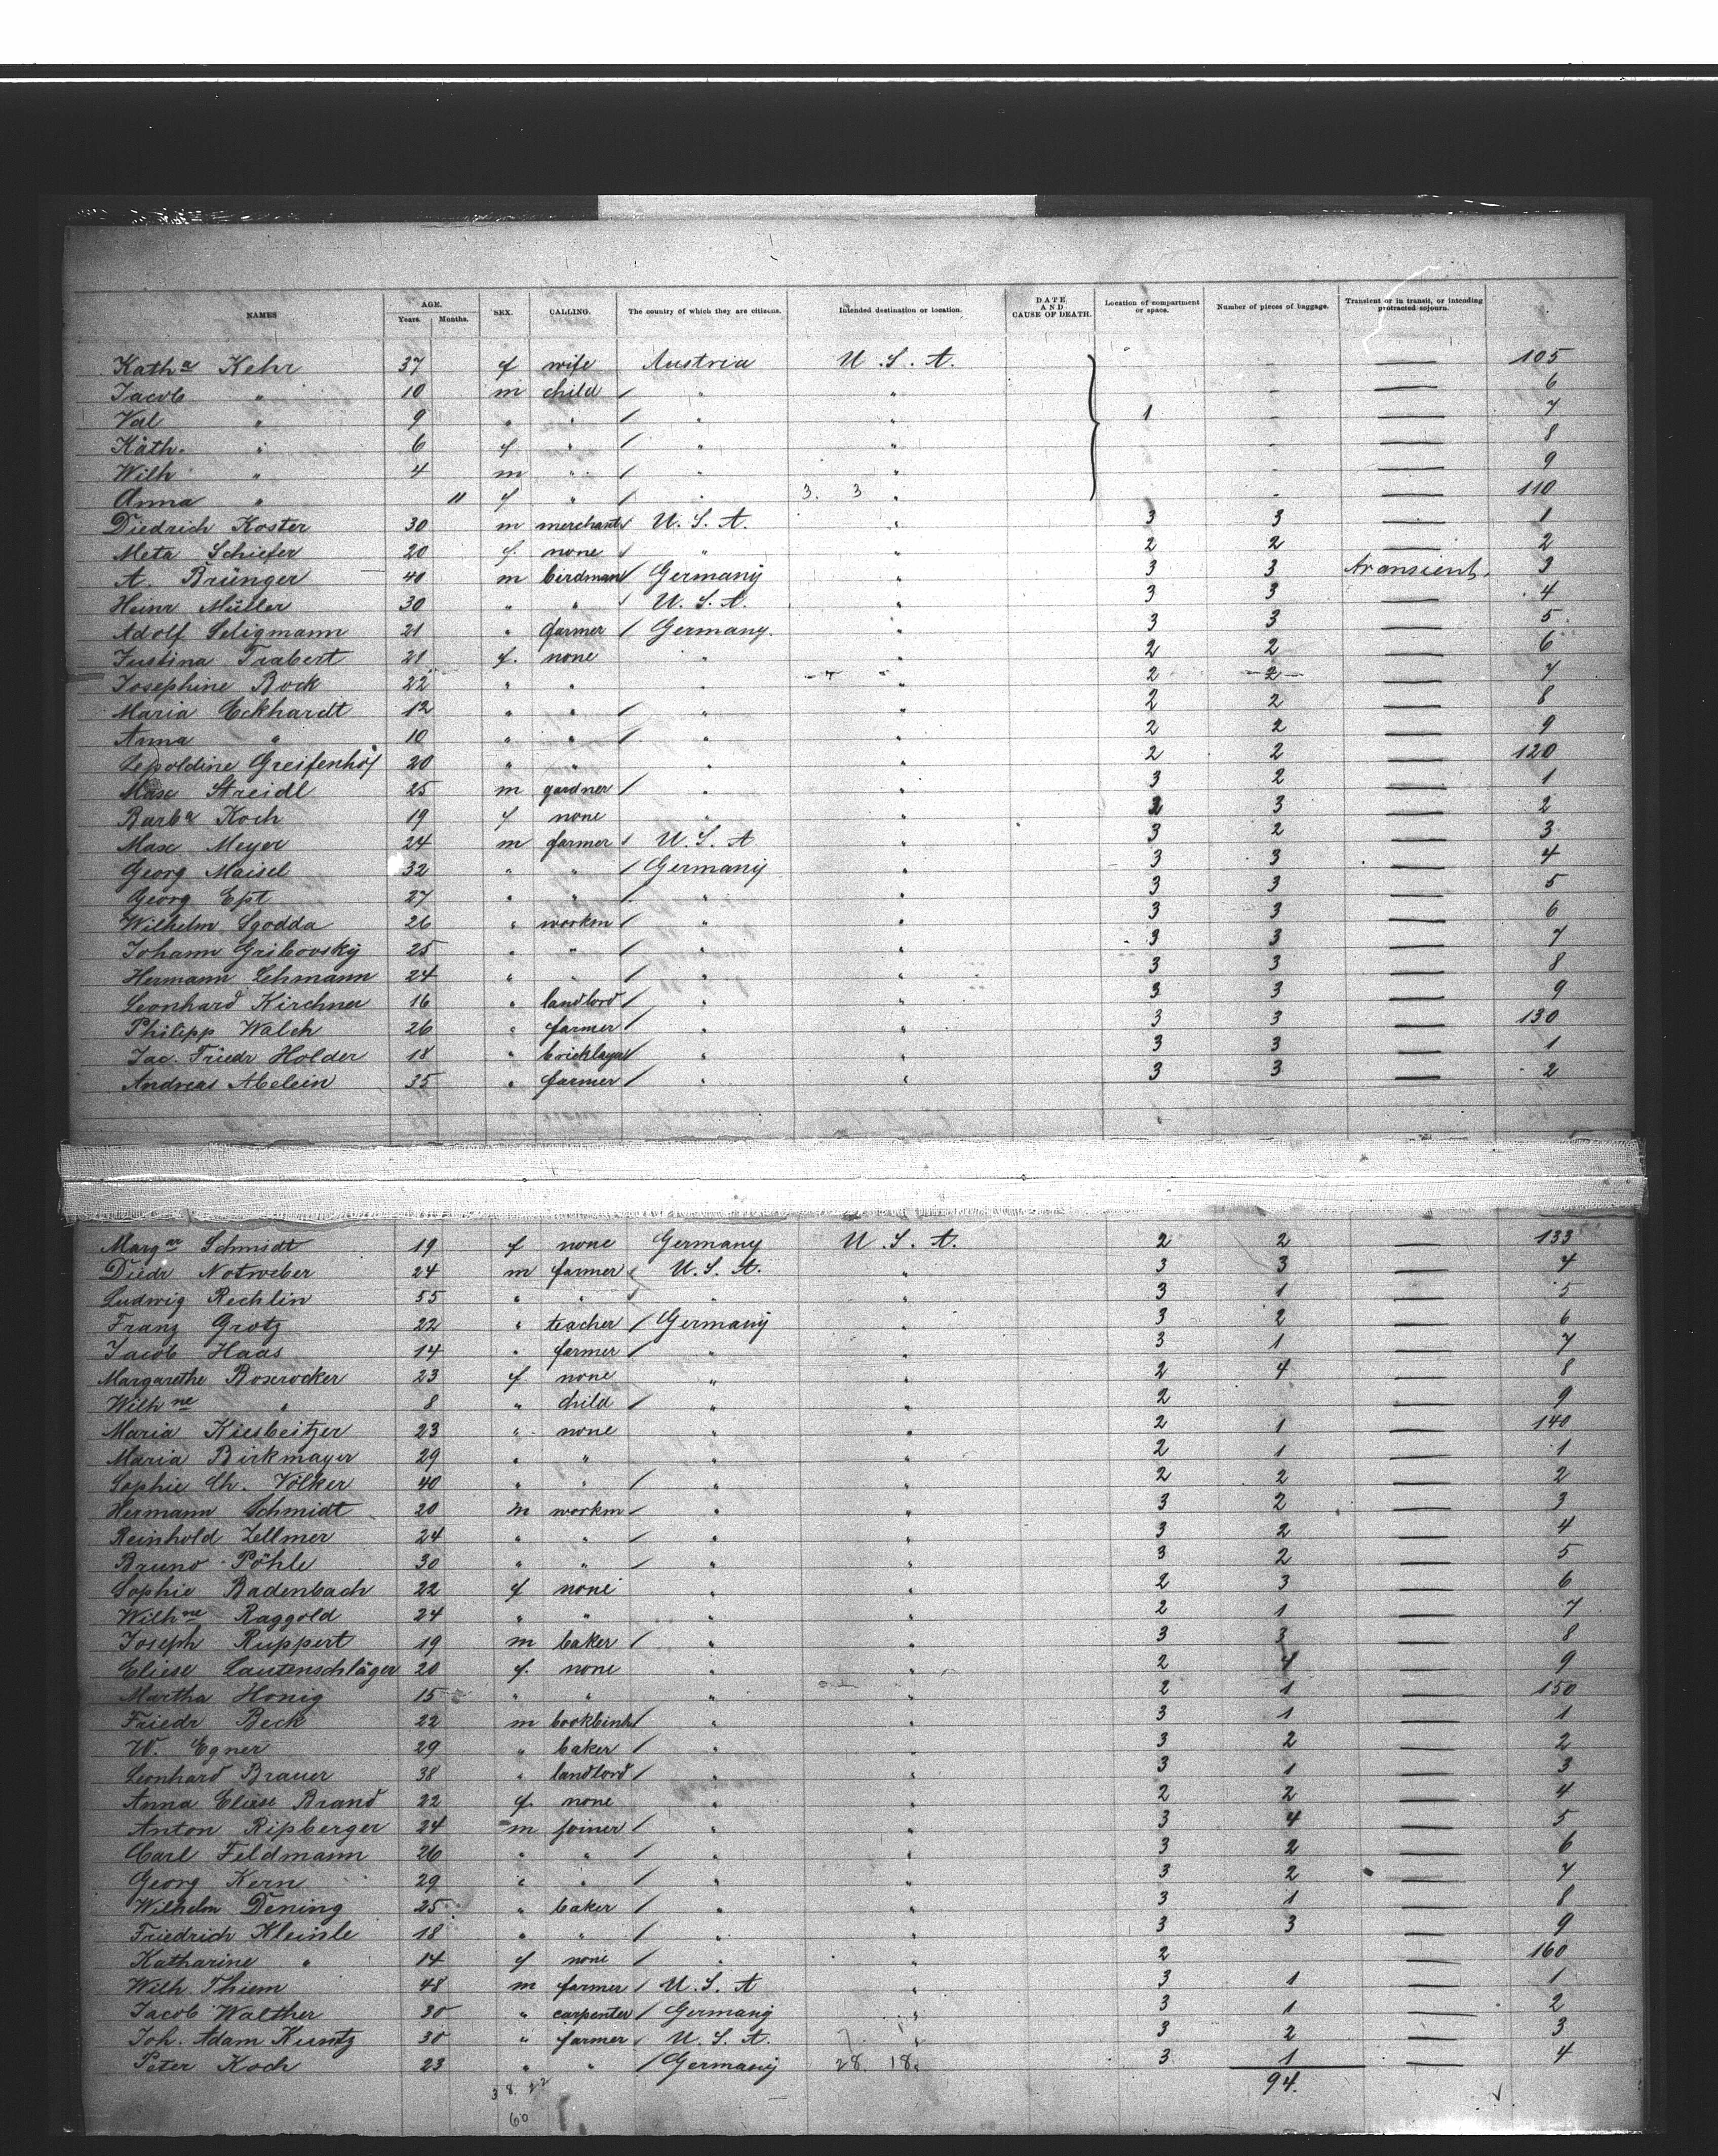 NAMES AGE. Years. Months. SEX. CALLING. The country of which they are citizens. Intended destination or location. DATE AND CAUSE OF DEATH. Location of compartment or space. Number of pieces of baggage. Transient or in transit, or intending protracted sojourn.
Kath a Kehr 37 f wife Austria U.S.A. — 105
Jacob " 10 m child / " " — 6
Val " 9 " " / " " 1 — 7
Käth. " 6 f " / " " — 8
Wilh " 4 m " / " " — 9
Anna " 11 f " / " 3. 3 " — 110
Diedrich Koster 30 m merchant / U.S.A. " 3 3 — 1
Meta Schiefer 20 f. none / " " 2 2 — 2
A. Brünger 40 m birdman / Germany " 3 3 transient. 3
Heinr Müller 30 " " / U.S.A. " 3 3 — 4
Adolf Seligmann 21 " farmer / Germany. " 3 3 — 5
Justina Trabert 21 f. none " " 2 2 — 6
Josephine Bock 22 " " " " 2 2 — 7
Maria Eckhardt 12 " " / " " 2 2 — 8
Anna " 10 " " / " " 2 2 — 9
Lepoldine Greifenhof 20 " " " " 2 2 — 120
Max Streidl 25 m gardner / " " 3 2 — 1
Barb a Koch 19 f none " " 2 3 — 2
Max Meyer 24 m farmer / U.S.A " 3 2 — 3
Georg Maisel 32 " " / Germany " 3 3 — 4
Georg Ept 27 " " / " " 3 3 — 5
Wilhelm Sgodda 26 " workm / " " 3 3 — 6
Johann Gribovsky 25 " " / " " 3 3 — 7
Hermann Lehmann 24 " " / " " 3 3 — 8
Leonhard Kirchner 16 " landlord / " " 3 3 — 9
Philipp Walch 26 " farmer / " " 3 3 — 130
Jac. Friedr Holder 18 " bricklayer / " " 3 3 — 1
Andreas Abelein 35 " farmer / " " 3 3 — 2
Marg ar Schmidt 19 f none Germany U.S.A. 2 2 — 133
Diedr Notweber 24 m farmer / U.S.A. " 3 3 — 4
Ludwig Rechlin 55 " " / " " 3 1 — 5
Franz Grotz 22 " teacher / Germany " 3 2 — 6
Jacob Haas 14 " farmer / " " 3 1 — 7
Margarethe Boxrocker 23 f none " " 2 4 — 8
Wilh ne " 8 " child / " " 2 — 9
Maria Kiesbeitzer 23 " none " " 2 1 — 140
Maria Birkmayer 29 " " " " 2 1 — 1
Sophie Ch. Völker 40 " " / " " 2 2 — 2
Hermann Schmidt 20 m workm / " " 3 2 — 3
Reinhold Zellmer 24 " " / " " 3 2 — 4
Bruno Pöhle 30 " " / " " 3 2 — 5
Sophie Badenbach 22 f none " " 2 3 — 6
Wilh ne Raggold 24 " " " " 2 1 — 7
Joseph Ruppert 19 m baker / " " 3 3 — 8
Eliese Lautenschläger 20 f. none " " 2 4 — 9
Martha Honig 15 " " " " 2 1 — 150
Friedr Beck 22 m bookbind / " " 3 1 — 1
W. Egner 29 " baker / " " 3 2 — 2
Leonhard Brauer 38 " landlord / " " 3 1 — 3
Anna Eliese Brand 22 f. none " " 2 2 — 4
Anton Ripberger 24 m joiner / " " 3 4 — 5
Carl Feldmann 26 " " / " " 3 2 — 6
Georg Kern 29 " " / " " 3 2 — 7
Wilhelm Dening 25 " baker / " " 3 1 — 8
Friedrich Kleinle 18 " " / " " 3 3 — 9
Katharine " 14 f none / " " 2 — 160
Wilh. Thiem 48 m farmer / U.S.A " 3 1 — 1
Jacob Walther 30 " carpenter / Germany " 3 1 — 2
Joh. Adam Kuntz 30 " farmer / U.S.A. " 3 2 — 3
Peter Koch 23 " " / Germany 28. 18. 3 1 — 4
38. 22 94.
60